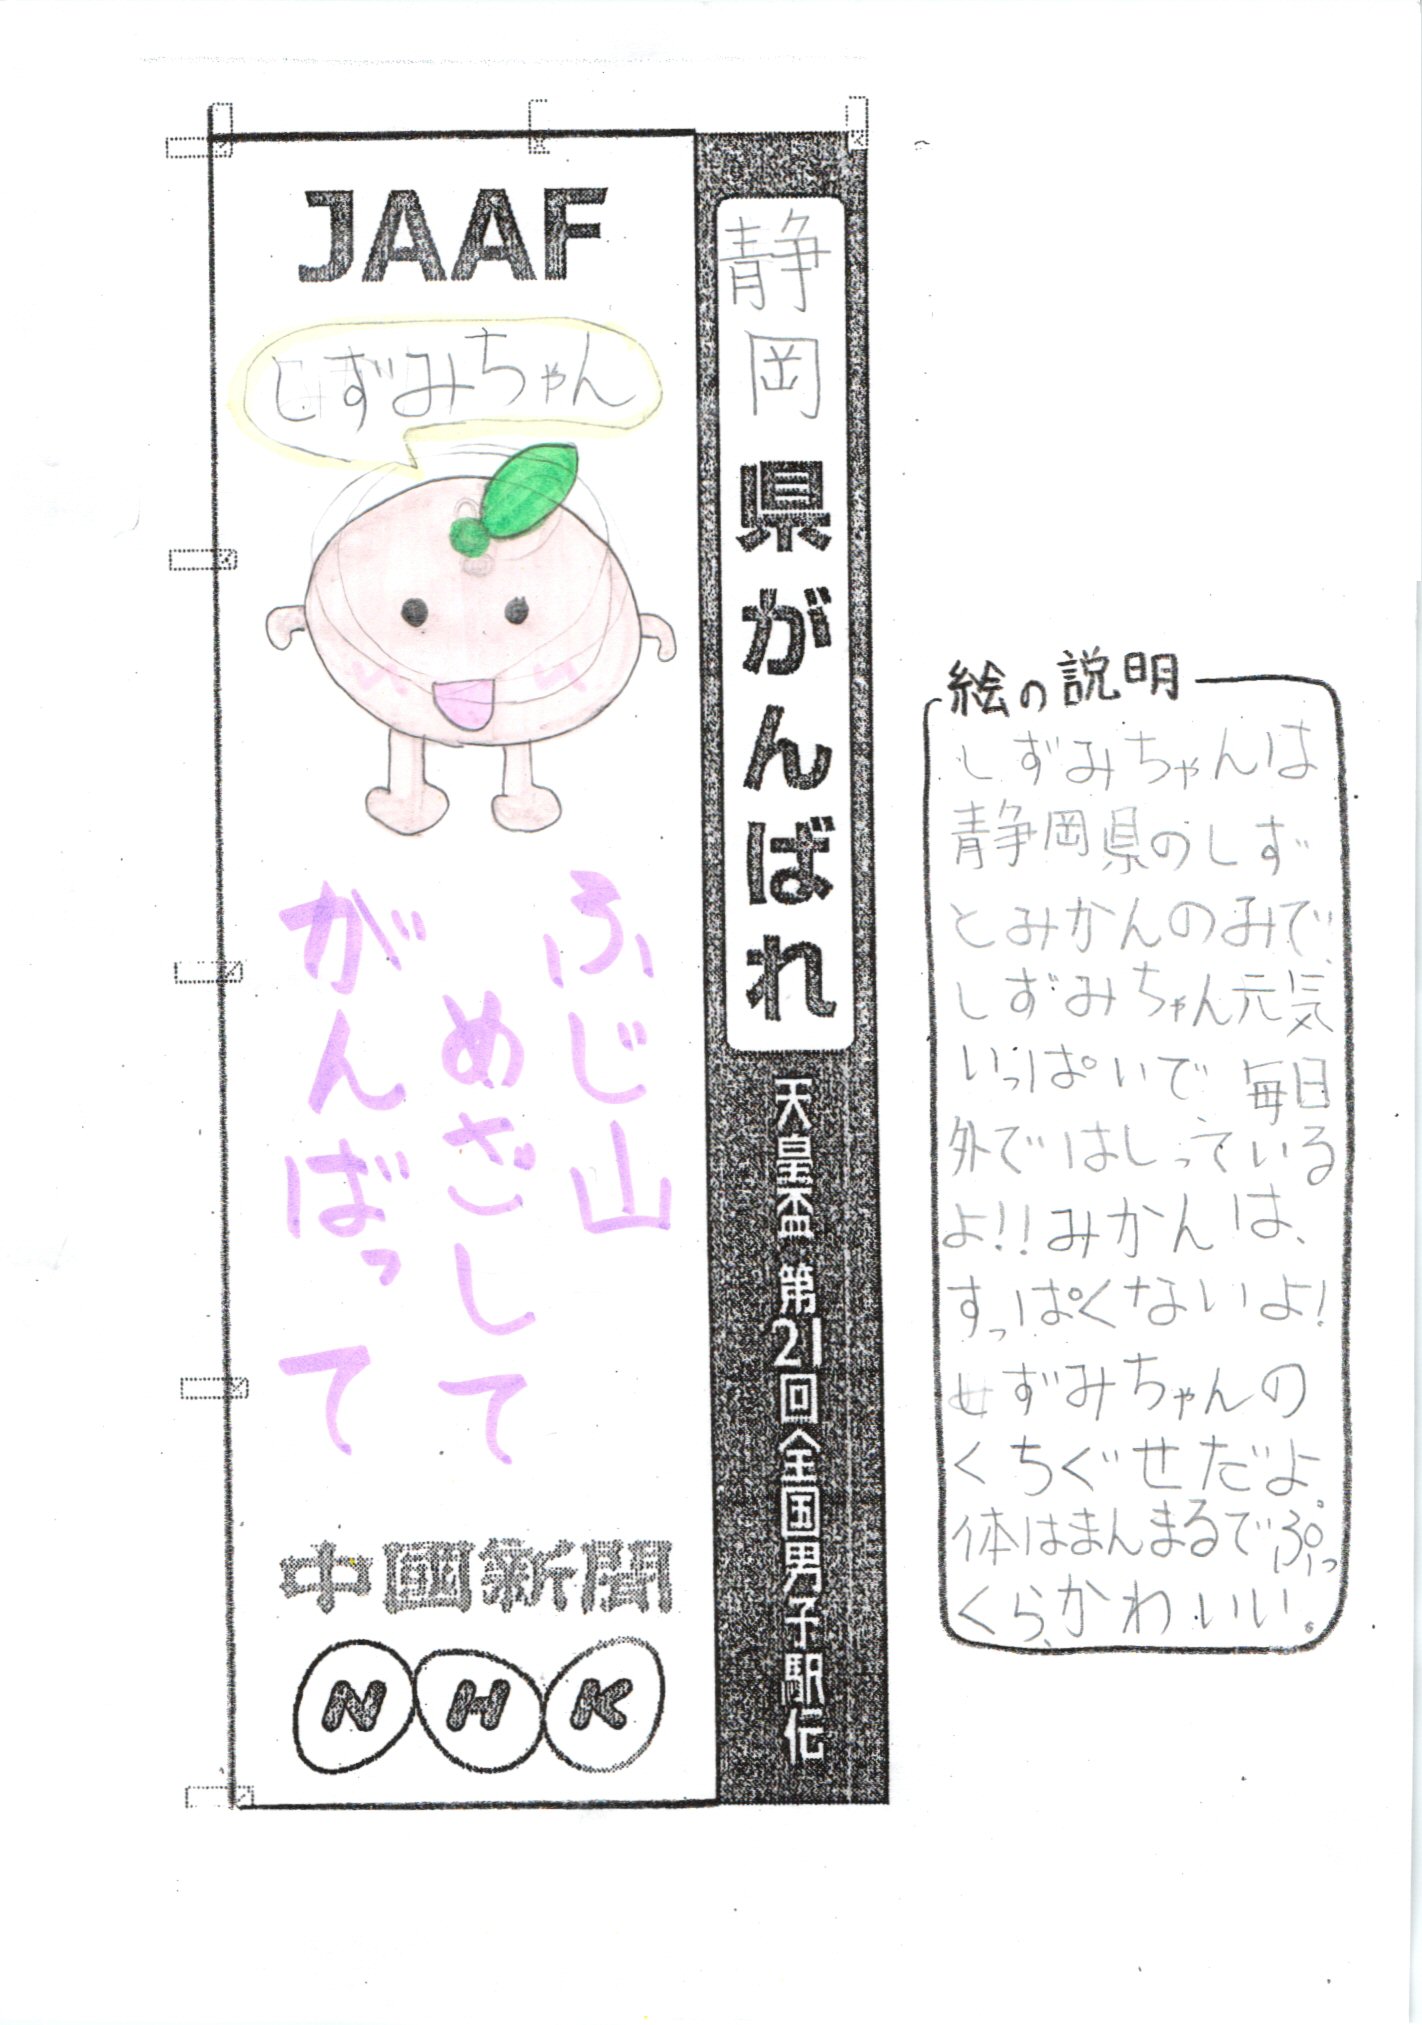 JAAF
しずみちゃん
静岡県がんばれ
天皇盃 第21回全国男子駅伝
ふじ山
めざして
がんばって
中國新聞
NHK
絵の説明
しずみちゃんは
静岡県のしず
とみかんのみで、
しずみちゃん元気
いっぱいで毎日
外ではしっている
よ!!みかんは、
すっぱくないよ!
しずみちゃんの
くちぐせだよ
体はまんまるでぷっ
くら、かわいい。